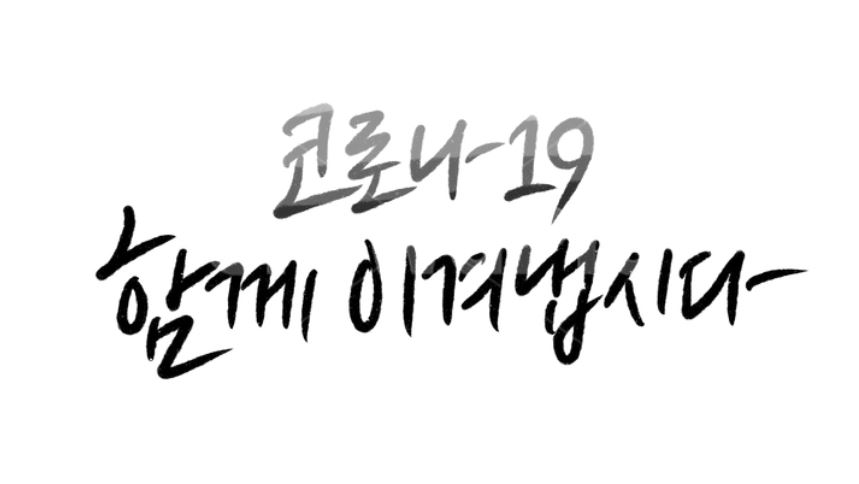 코로나-19
함께 이겨냅시다